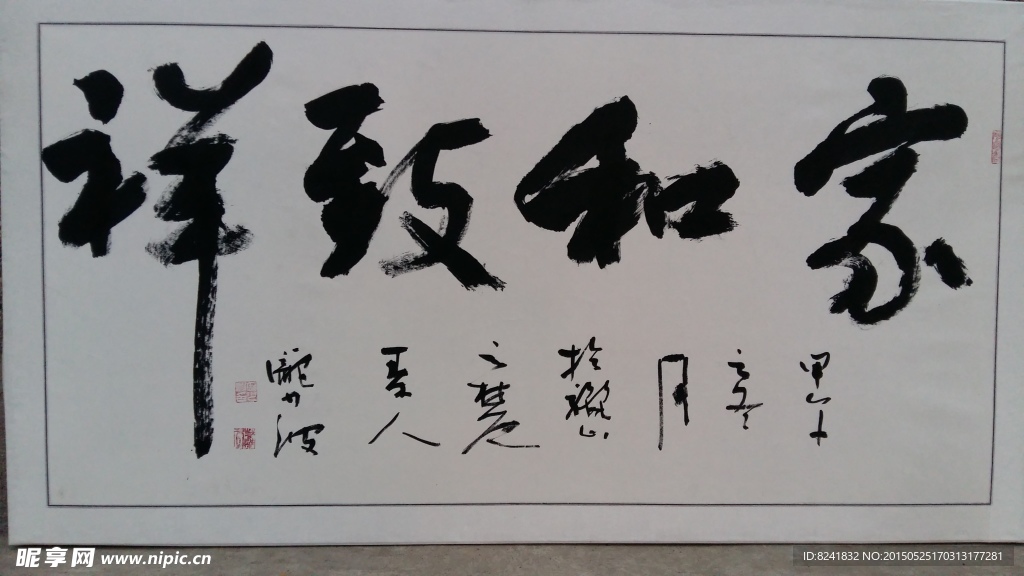 家和致祥
甲午
之冬
月
於
之楚
人
昵享网 www.nipic.cn
ID:8241832 NO:20150525170313177281